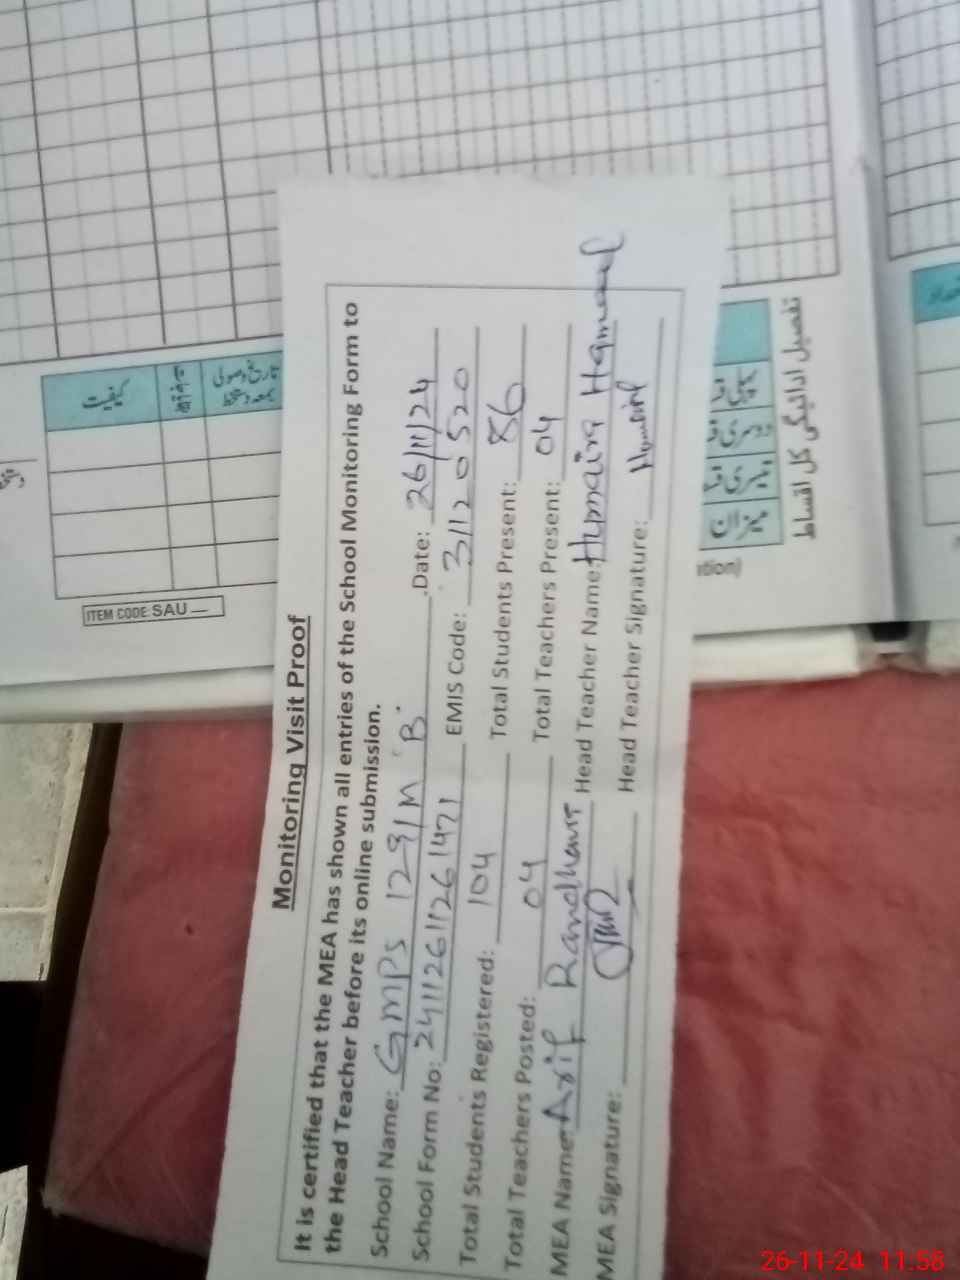 Monitoring Visit Proof
It is certified that the MEA has shown all entries of the School Monitoring Form to
the Head Teacher before its online submission.
School Name: GMPS 129/M 'B' .Date: 26/11/24
School Form No: 24112611261471 EMIS Code: 31120520
Total Students Registered: 104 Total Students Present: 86
Total Teachers Posted: 04 Total Teachers Present: 04
MEA Name: Arif Randhawa Head Teacher Name: Humaira Hameed
MEA Signature: Head Teacher Signature:
کیفیت
تاریخ وصولی
بمعہ دستخط
ITEM CODE: SAU
پہلی
دوسری
تیسری
میزان
تفصیل ادائیگی کل اقساط
26-11-24 11:58